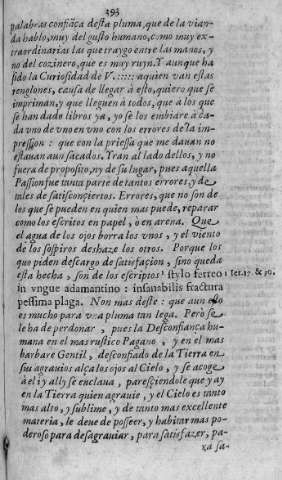 293
palabras confiãça desta pluma, que de la vian-
da hablo, muy del gusto humano, como muy ex-
traordinarias las que traygo entre las manos, y
no del cozinero, que es muy ruyn. Y aunque ha
sido la Curiosidad de V. ::::: a quien van estas
renglones, causa de llegar à esto, quiero que se
impriman, y que lleguen à todos, que a los que
se han dado libros ya, yo se los embiare à ca-
da vno de vno en vno con los errores de la im-
pression: que con la priessa que me dauan no
estauan aun sacados. Yran al lado dellos, y no
fuera de proposito, ny de su lugar, pues aquella
Passion fue tanta parte de tantos errores, y de
miles de satisfonciertos. Errores, que no son de
los que se pueden en quien mas puede, reparar
como los escritos en papel, ò en arena. Que
el agua de los ojos borra los vnos, y el viento
de los sospiros deshaze los otros. Porque los
que piden descargo de satisfaçion, sino queda
esta hecha, son de los escriptos stylo ferreo Ier. 17. & 30.
in vngue adamantino : insanabilis fractura
pessima plaga. Non mas deste: que aun esto
es mucho para vna pluma tan lega. Però se
le ha de perdonar, pues la Desconfiança hu-
mana en el mas rustico Pagano, y en el mas
barbare Gentil, desconfiado de la Tierra en
sus agrauios alça los ojos al Cielo, y se acoge
à el i y ally se enclaua, paresçiendole que ay ay
en la Tierra quien agrauie, y el Cielo es tanto
mas alto, y sublime, y de tanto mas excellente
materia, le deue de posseer, y habitar mas po-
deroso para desagrauiar, para satisfazer, pa-
xa sa-